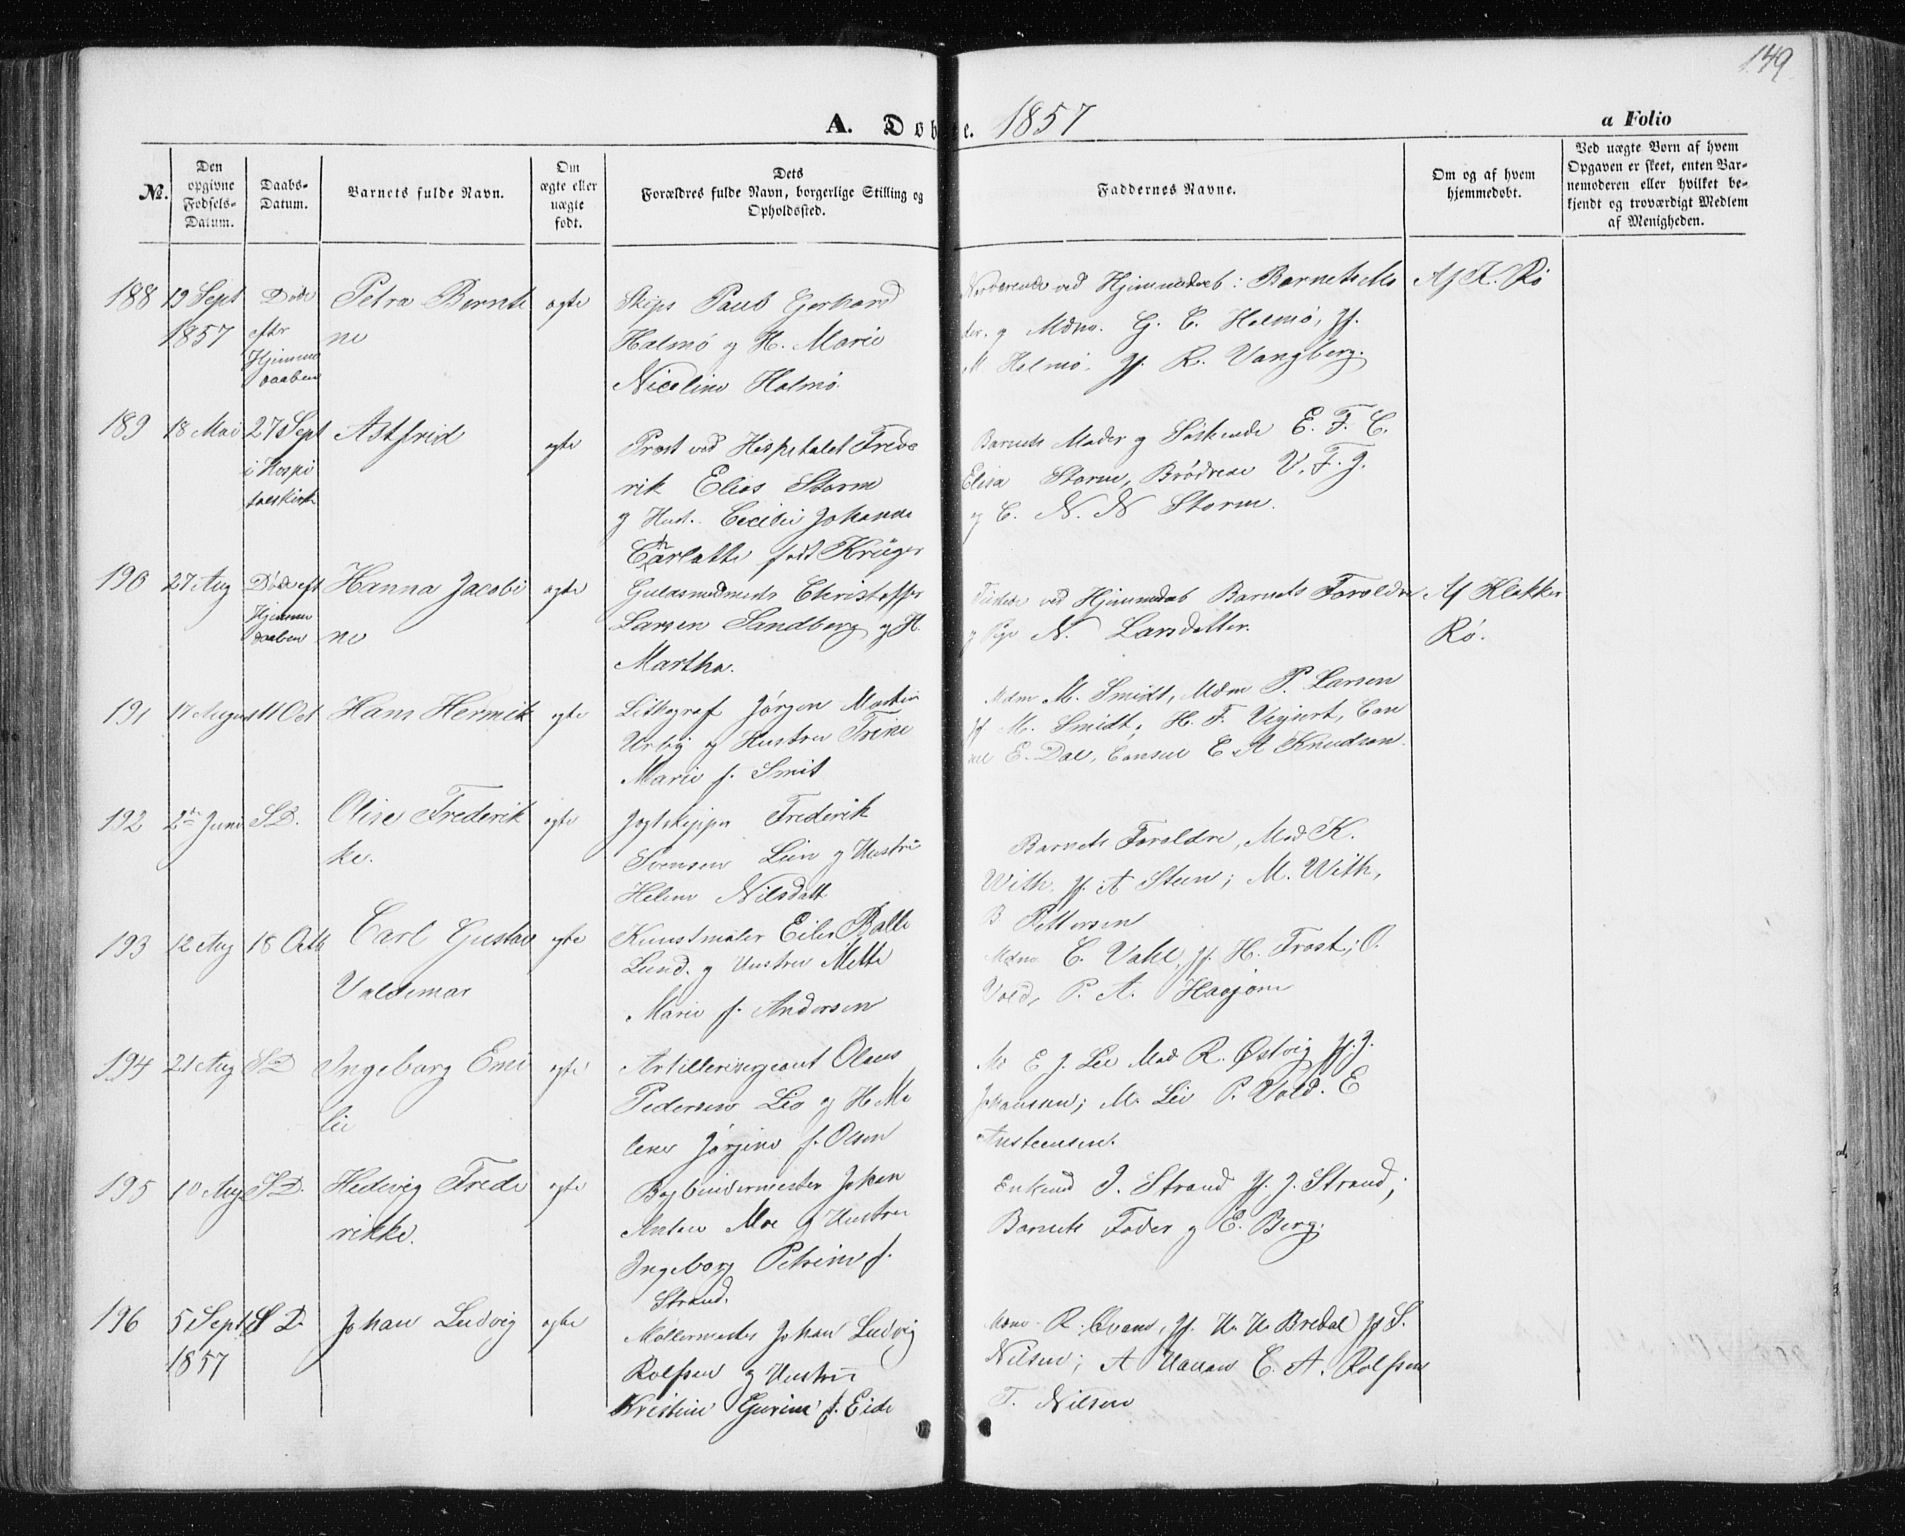 149
A. Døbte. 1857
a Folio
No.
Den opgivne Fødsels-Datum.
Daabs-Datum.
Barnets fulde Navn.
Om ægte eller uægte født.
Dets Forældres fulde Navn, borgerlige Stilling og Opholdssted.
Faddernes Navne.
Om og af hvem hjemmedøbt.
Ved uægte Børn af hvem Opgaven er skeet, enten Barnemoderen eller hvilket bekjendt og troværdigt Medlem af Menigheden.
188 19 Sept 1857
Døde efter Hjemme daaben
Petra Bernti
ne
ægte
Skips Paul Gerhard
Halmø og H. Marie
Nicoline Halmø
ved Hjemmedaab: Barnets Mo
der og Mdm. G. C. Holmø, Jf.
M Holmø, Jf. R. Vangberg.
Af K. Rø
189 18 Mai 27 Sept
i Hospi
talskirke
Astfrid
ægte
Præst ved Hospitalet Frede
rik Elias Storm
og Hust. Cecilie Johanne
Carlotte født Krüger
Barnets Moder og Søskende E. F. C.
Elisa Storm, Brødrene V. F. J.
og C. N. N Storm.
190 27 Aug
Døde eft
Hjemme
daaben
Hanna Jacobi
ne
ægte
Guldsmedmester Christoffer
Larsen Sandberg og H.
Martha.
ved Hjemmedaab Barnets Forældre
og Pige N. Larsdatter.
Af Klokker
Rø.
191 17 August 11 Oct
Hans Hermik
ægte
Lithograf Jørgen Martin
Urbÿ og Hustru Trine
Marie f. Smit
Mdm M. Smidt, Mdm P. Larsen
Jf M. Smidt; H. F. Vejnert, Con
sul E. Dal, Consul C. A Knudson.
192 2den Juni S.D.
Olise Frederik
ke.
ægte
Jagtskipper Frederik
Svensen Lien og Hustru
Helene Nilsdatt
Barnets Forældre, Mad K.
With, Jf. A Steen; M. With,
B Pettersen
193 12 Aug 18 Octb
Carl Gustav
Valdemar
ægte
Kunstmaler Eiler Balle
Lund og Hustru Mette
Marie f. Andersen
Mdm C. Vahl, Jf. H. Frost; O.
Vold, P. A.
194 21 Aug S D
Ingeborg Emi
lie
ægte
Artillerisergeant Olaus
Pedersen Lea og H. Ma
lene Jørgine f. Olsen
E J. Lie Mad R. Østvig Jf. J.
Johansen; M. Lie P. Vold. E
Austeensen.
195 10 Aug S.D.
Hedevig Frede
rikke.
ægte
Bogbindermester Johan
Anton Moe og Hustru
Ingeborg Petrine f.
Strand.
J. Strand Jf. J. Strand;
Barnets Fader og E. Berg.
196 5 Sept S D.
1857
Johan Ludvig
ægte
Møllermester Johan Ludvig
Rolfsen og Hustru
Kristine Gurine f. Eide
R. Qvam, Jf. U. U. Bredal Jf S.
Nilsen; A Hanan C. A. Rolfsen
T. Nilsen